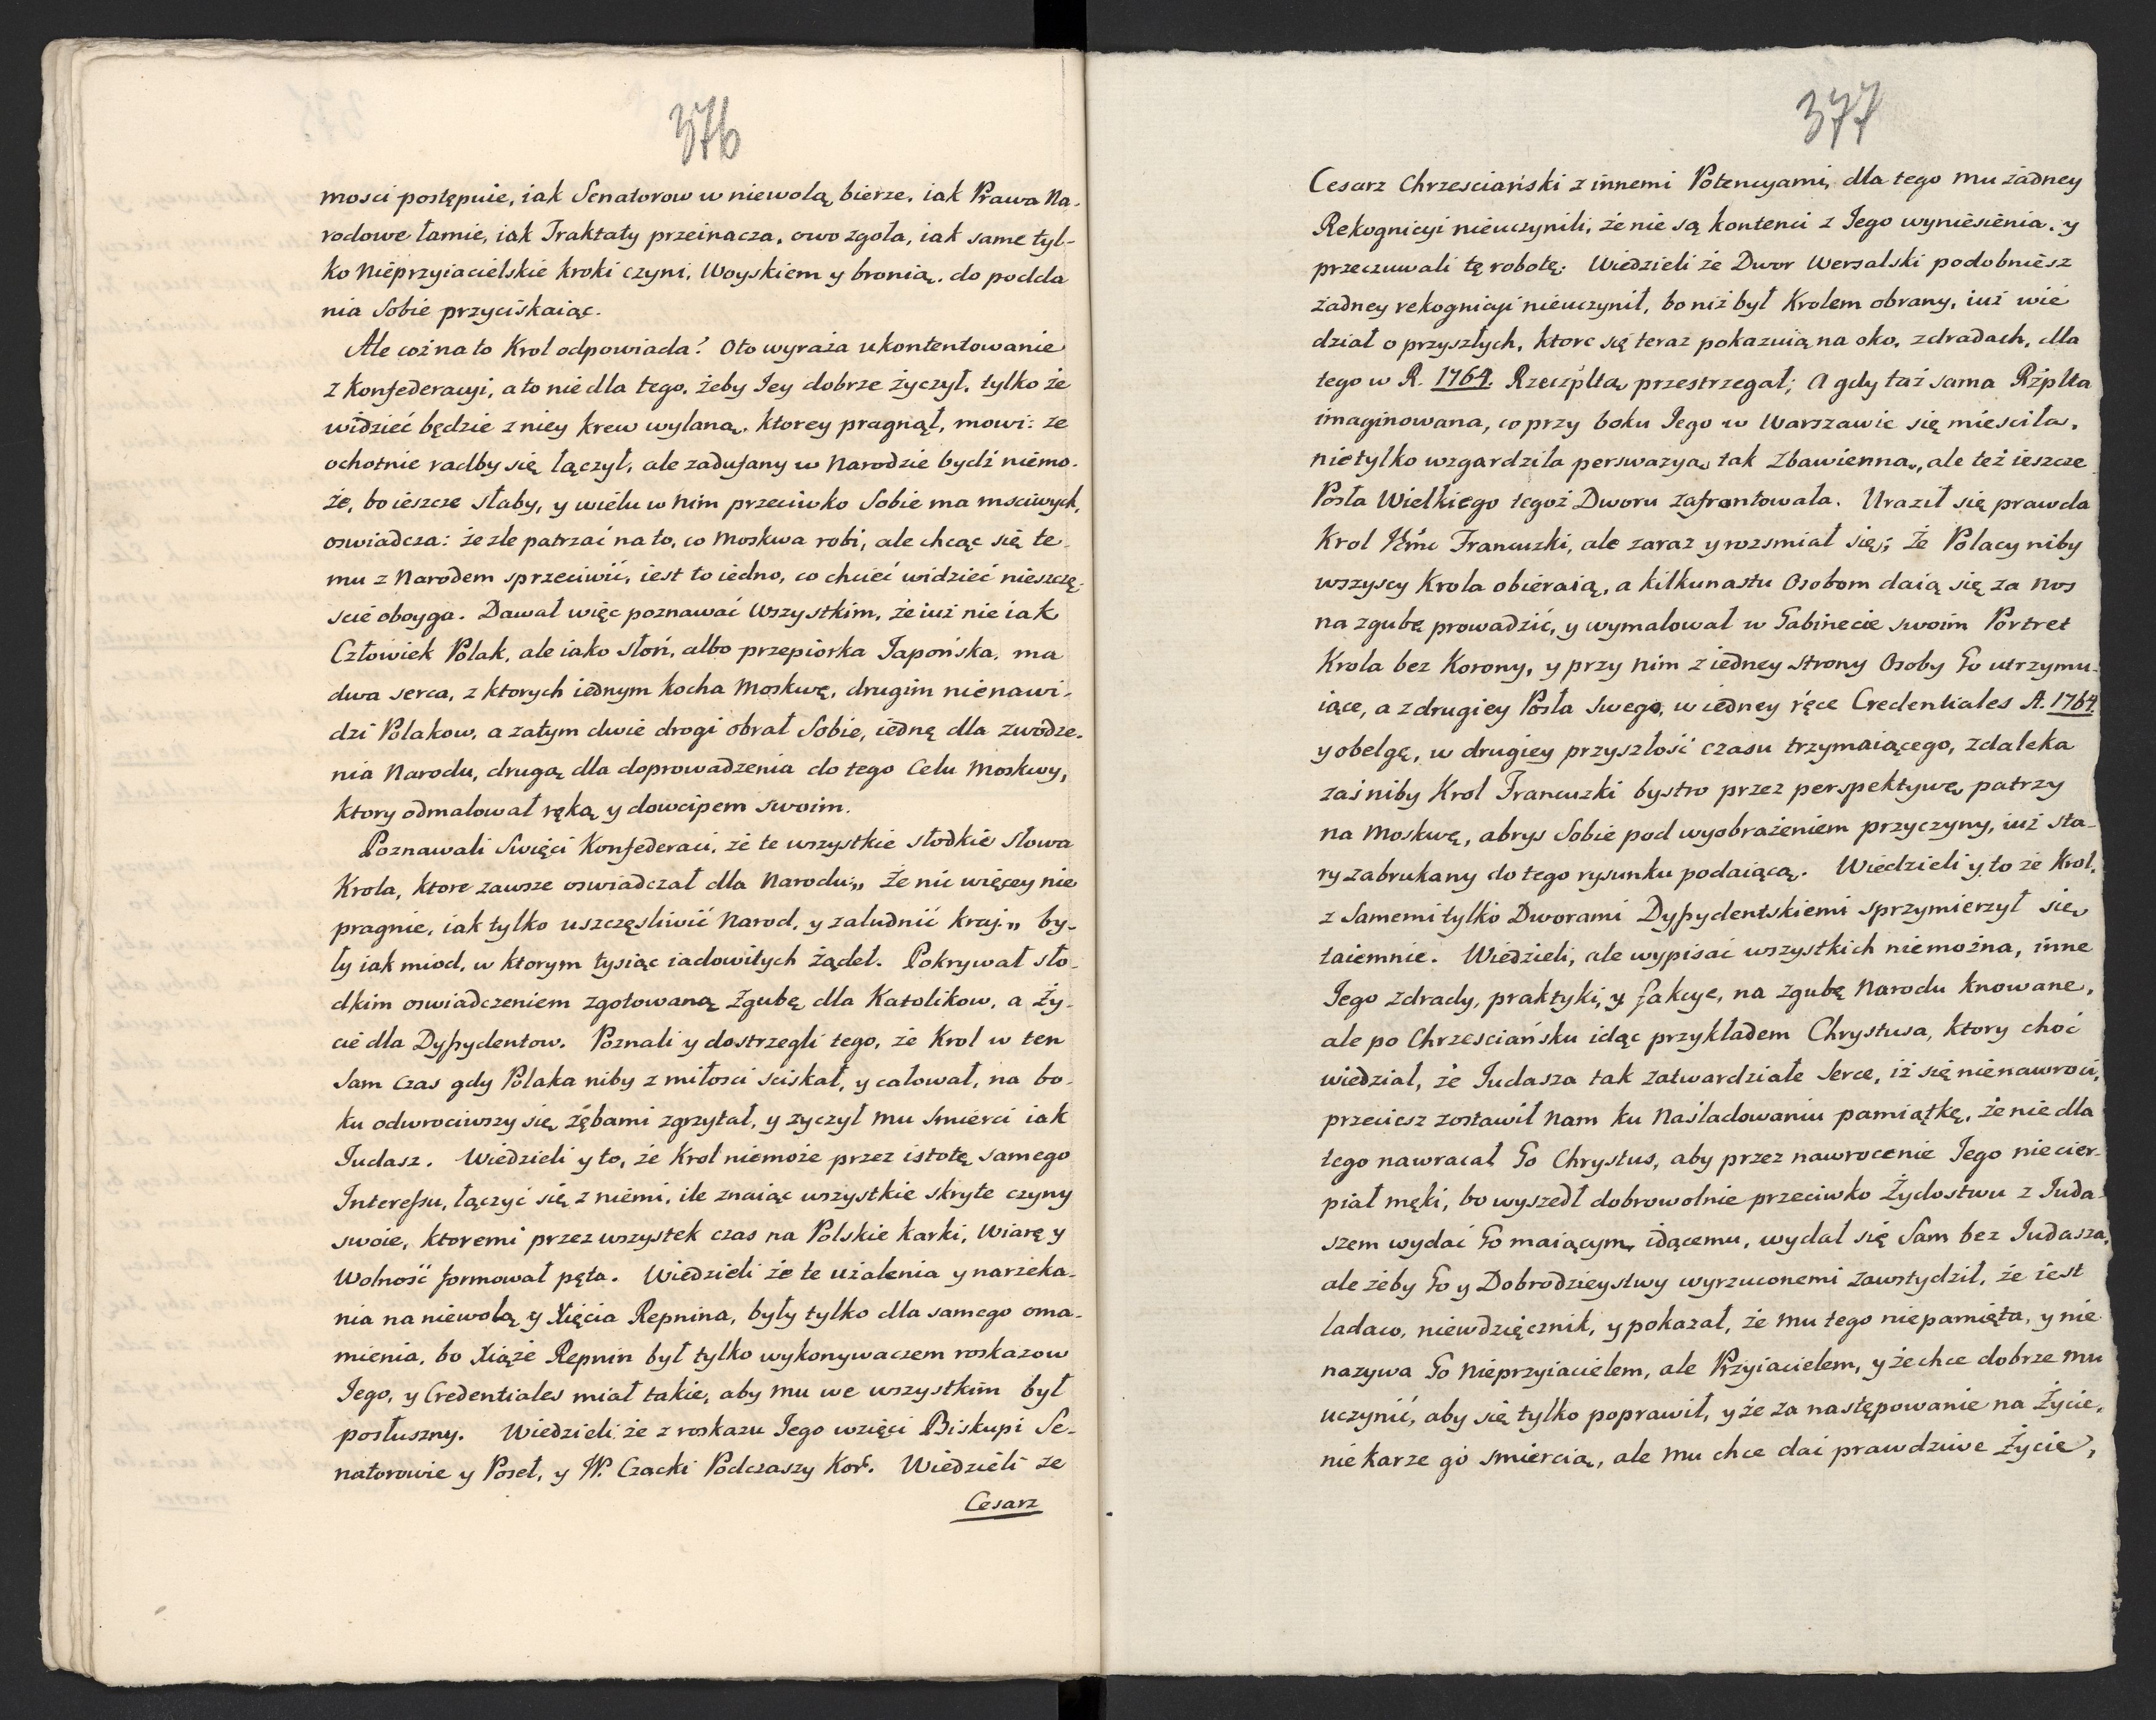 376
mosci postępuie, iak Senatorow w niewolą bierze, iak Prawa Na-
rodowe łamie, iak Traktaty przeinacza, owo zgoła, iak same tyl-
ko Nieprzyiacielskie kroki czyni, Woyskiem y bronią, do podda
nia Sobie przyciskaiąc.
Ale coż na to Krol odpowiada? Oto wyraża ukontentowanie
z Konfederacyi, a to nie dla tego, żeby Iey dobrze życzył, tylko że
widzieć będzie z niey krew wylaną, ktorey pragnął, mowi: ze
ochotnie radby się łączył, ale zadufany w Narodzie bydź niemo-
że, bo ieszcze słaby, y wielu w Nim przeciwko Sobie ma msciwych,
oswiadcza: że zle patrzać na to, co Moskwa robi, ale chcąc się te-
mu z Narodem sprzeciwić, iest to iedno, co chcieć widzieć nieszczę-
scie oboyga. Dawał więc poznawać Wszystkim, że iuż nie iak
Człowiek Polak, ale iako słoń, albo przepiorka Iapońska, ma
dwa serca, z ktorych iednym kocha Moskwę, drugim nienawi-
dzi Polakow, a zatym dwie drogi obrał Sobie, iednę dla zwodze-
nia Narodu, drugą dla doprowadzenia do tego Celu Moskwy,
ktory odmalował ręką y dowcipem swoim.
Poznawali Swięci Konfederaci, że te wszystkie słodkie słowa
Krola, ktore zawsze oswiadczał dla Narodu „ Że nic więcey nie
pragnie, iak tylko uszczęsliwić Narod, y zaludnić kraj „ by-
ły iak miod, w ktorym tysiąc iadowitych żądeł. Pokrywał sło-
dkim oswiadczeniem zgotowaną zgubę dla Katolikow, a Ży-
cie dla Dyssydentow. Poznali y dostrzegli tego, że Krol w ten
Sam czas gdy Polaka niby z miłosci sciskał, y całował, na bo-
ku odwrociwszy się zębami zgrzytał, y zyczył mu Smierci iak
Iudasz. Wiedzieli y to, że Krol niemoże przez istotę samego
Interessu, łączyć się z niemi, ile znaiąc wszystkie skryte czyny
swoie, ktoremi przez wszystek czas na Polskie karki, Wiarę y
Wolność formował pęta. Wiedzieli że te użalenia y narzeka-
nia na niewolą y Xięcia Repnina, były tylko dla samego oma-
mienia, bo Xiąże Repnin był tylko wykonywaczem roskazow
Iego, y Credentiales miał takie, aby mu we wszystkim był
posłuszny. Wiedzieli że z roskazu Iego wzięci Biskupi Se-
natorowie y Poseł, y W. Czacki Podczaszy Kor. Wiedzieli ze
Cesarz
377
Cesarz Chrzesciański z innemi Potencyami, dla tego mu żadney
Rekognicyi nieuczynili, że nie są kontenci z Iego wyniesienia, y
przeczuwali tę robotę. Wiedzieli że Dwor Wersalski podobniesz
żadney rekognicyi nieuczynił, bo niż był Krolem obrany, iuż wie
dział o przyszłych, ktore się teraz pokazuią na oko, zdradach, dla
tego w R. 1764. Rzeczpltą przestrzegał; A gdy taż sama Rzplta
imaginowana, co przy boku Iego w Warszawie się miesciła,
nietylko wzgardziła perswazyą tak Zbawienną, ale też ieszcze
Posła Wielkiego tegoż Dworu zafrontowała. Uraził się prawda
Krol Francuzki, ale zaraz y rozsmiał się, że Polacy niby
wszyscy Krola obieraią, a kilkunastu Osobom daią się za nos
na zgubę prowadzić, y wymalował w Gabinecie swoim Portret
Krola bez Korony, y przy nim z iedney strony Osoby Go utrzymu-
iące, a z drugiey Posła Swego, w iedney ręce Credentiales A. 1764
y obelgę, w drugiey przyszłość czasu trzymaiącego, zdaleka
zaś niby Krol Francuzki bystro przez perspektywę patrzy
na Moskwę, abrys Sobie pod wyobrażeniem przyczyny, iuż sta-
ry zabrukany do tego rysunku podaiącą. Wiedzieli y to że Krol,
z Samemi tylko Dworami Dyssydentskiemi sprzymierzył się
taiemnie. Wiedzieli, ale wypisać wszystkich niemożna, inne
Iego zdrady, praktyki, y fakcye, na zgubę Narodu knowane,
ale po Chrzesciańsku idąc przykładem Chrystusa, ktory choć
wiedział, że Iudasza tak zatwardziałe Serce, iż się nienawroci,
przeciesz zostawił Nam ku Naśladowaniu pamiątkę, że nie dla
tego nawracał Go Chrystus, aby przez nawrocenie Iego niecier-
piał męki, bo wyszedł dobrowolnie przeciwko Żydostwu z Iuda-
szem wydać Go maiącym, idącemu, wydał się Sam bez Iudasza,
ale żeby Go y Dobrodzieystwy wyrzuconemi zawstydził, że iest
ladaco, niewdzięcznik, y pokazał, że mu tego niepamięta, y nie
nazywa Go Nieprzyiacielem, ale Przyiacielem, y że chce dobrze mu
uczynić, aby się tylko poprawił, y że za następowanie na Życie,
nie karze go smiercią, ale mu chce dać prawdziwe Życie,